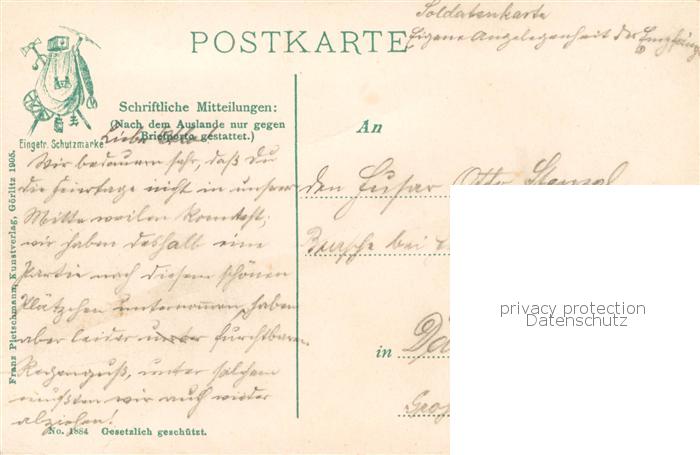 Soldatenkarte
Eigene Angelegenheit des Empfängers
POSTKARTE
Eingetr. Schutzmarke
Schriftliche Mitteilungen:
(Nach dem Auslande nur gegen
Briefporto gestattet.)
An
Lieber Otto!
Wir bedauern sehr, daß Du
die Feiertage nicht in unserer
Mitte weilen konntest;
wir haben deshalb eine
Partie nach diesem schönen
Plätzchen unternommen, haben
aber leider unter furchtbaren
Regenguß, unter solchem
mußten wir auch wieder
abziehen!
den Husar Otto Stenzel
Bursche bei
in
Franz Pietschmann, Kunstverlag, Görlitz 1905.
No. 1884 Gesetzlich geschützt.
privacy protection
Datenschutz